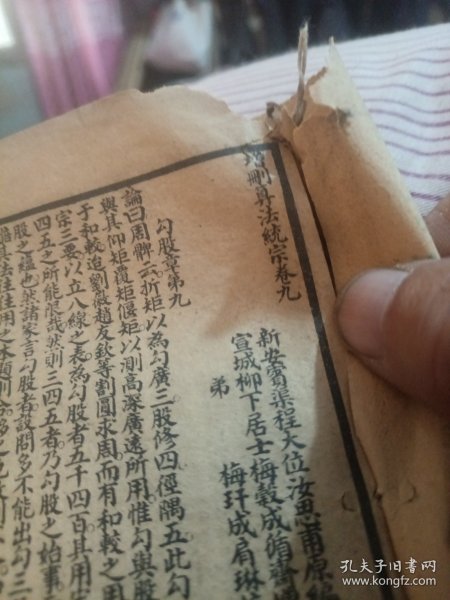 增刪算法統宗卷九
新安賓渠程大位汝思甫原編
宣城柳下居士梅瑴成循齋
弟 梅玕成肩琳
勾股章第九
論曰周髀云折矩以為勾廣三股修四徑隅五此勾
與其仰矩覆矩偃矩以測高深廣遠所用惟勾與股
于和較迨劉徽趙友欽等割圓求周而有和較之用
宗三要以立八線之表為勾股者五千四百其用
四五之所能限哉然則三四五者乃勾股之始事
股之蘊也然諸家言勾股者設問多不能出勾三
孔夫子旧书网
www.kongfz.com